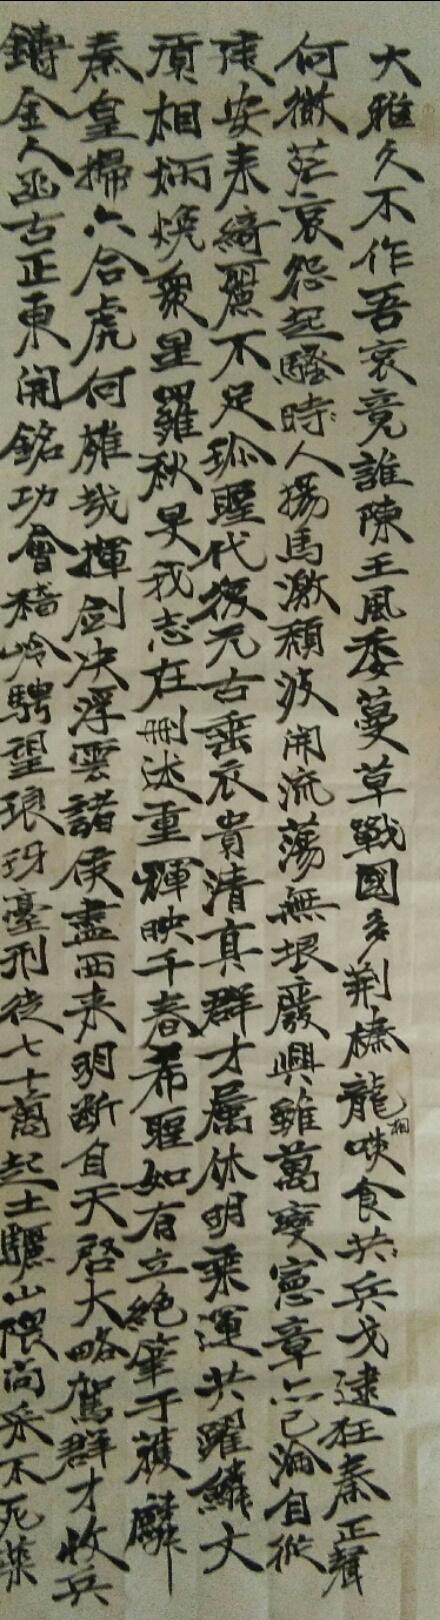 大雅久不作吾哀竟誰陳王風委蔓草戰國多荆榛龍相啖食共兵戈逮狂秦正聲
何微茫哀怨起騷時人揚馬激頹波開流蕩無垠廢興雖萬變憲章亦已淪自從
建安来綺麗不足珎聖代復元古垂衣貴清真群才属休明乘運共躍鱗文
質相炳焕衆星羅秋旻我志在刪述重輝映千春希聖如有立絕筆于獲麟
秦皇掃六合虎何雄哉揮劍决浮雲諸侯盡西来明斷自天啓大略駕群才收兵
鑄金人函古正東開銘功會稽岭騁望琅玡臺刑徒七十萬起土驪山隈尚采不死藥